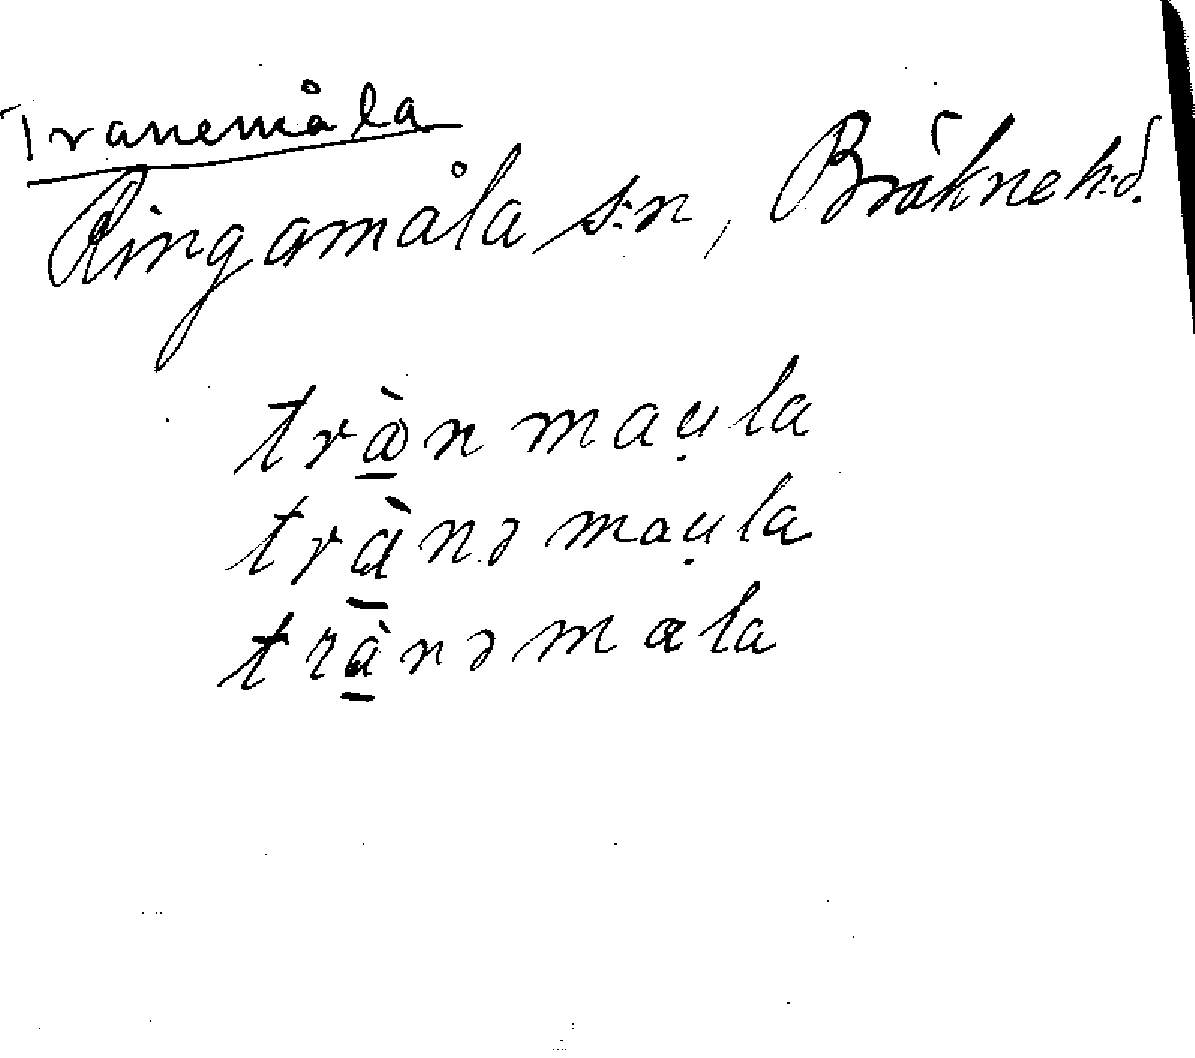 Tranemåla
Ringamåla s:n, Bräkne h:d.
trɑ̱̀nmau̯la
trɑ̱̀nəmau̯la
trɑ̱̀nəmala